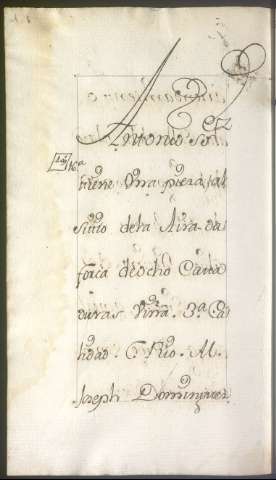 Antonio
tiene Viña pieza al
sitio dela Aira da
forca de ocho Cava
duras Viña. 3ª Ca
lidad. C. Rio. Al.
Joseph Dominguez